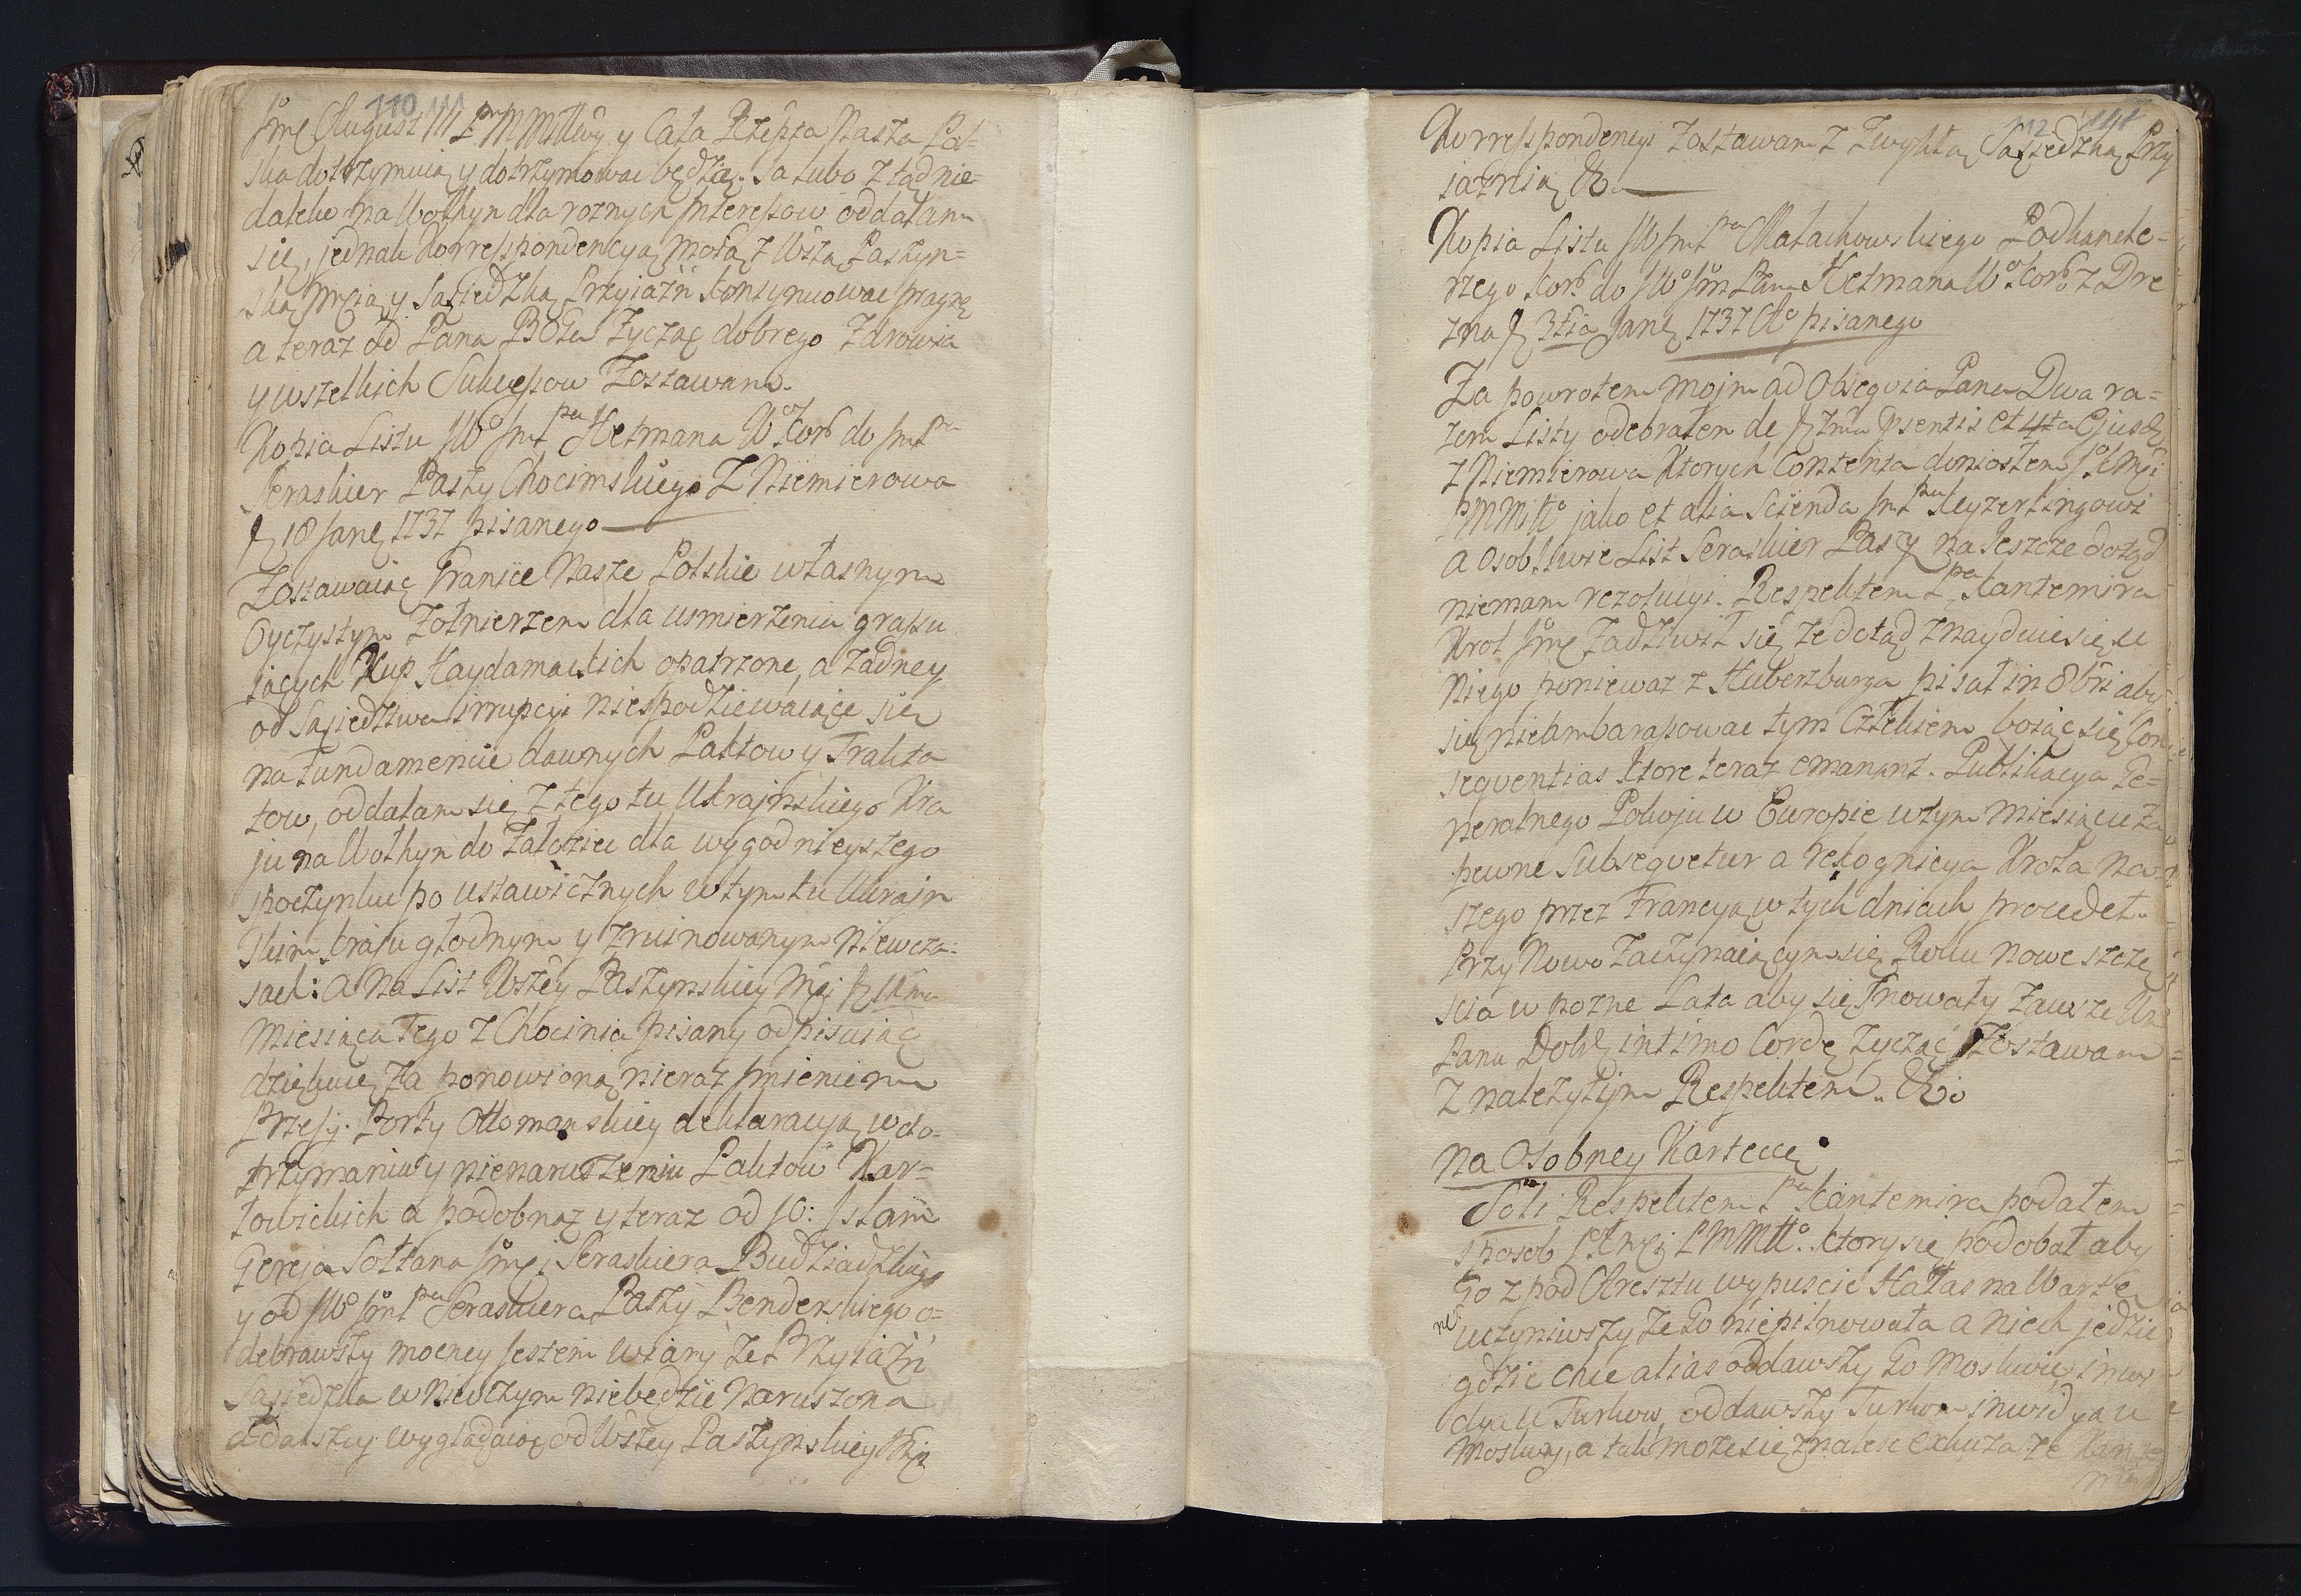 110 111
Jmę August III P. M. Młłwy y Cała Rzeplta Nasza Pol=
ska dotrzymuią y dotrzymować będzię. Ja lubo z tąd nie=
daleko na Wołhyn dla roznych Interessow oddalam
się, jednak Korrespondencyą Moią z Wszą Paszyn=
ską Mcią y Sąsiedzką Przyiaźń kontynuowac pragnę
a teraz od Pana Boga życząc dobrego Zdrowia
y wszelkich Sukcessow Zostawam.
Kopia Listu JWo Jmć Pa Hetmana Wo Kor do Jmć Pa
Seraskier Paszy Chocimskiego Z Niemierowa
18 Janę 1737 pisanego
Zostawaiąc Granice Nasze Polskie własnym
Oyczystym Zołnierzem dla usmierzenia grassu
jących Kup Haydamackich opatrzone, a żadney
od Sąsiedztwa irrupcyi niespodziewaiące się
na fundamencie dawnych Paktow y Trakta
tow, oddalam się z tego tu Ukrajnskiego Kra
ju na Wołhyn do Załoziec dla wygodnieyszego
spoczynku po ustawicznych w tym tu Ukrajn
skim kraju głodnym y zruinowanym niewcza=
sach: a na List Wszey Paszynskiey Mci
Miesiąca Tego z Chocimia pisany odpisuiąc
dziękuię za ponowioną nieraz Imieniem
Przesw. Porty Ottomanskiey deklaracyą w do=
trzymaniu y nienaruszeniu Paktow Kar=
łowickich a podobnąż y teraz od Jo: Islam
Gereja Sołtana Jmci Seraskiera Budziadzkiego
y od JWo Jmć Pa Seraskiera Paszy Benderskiego o=
debrawszy mocney jestem wiary że Przyiaźń
Sąsiedzka w niwczym niebędzie naruszona
a dalszey wyglądaiąc od Wszey Paszynskiey Mci
112 111
Korrespondencyi zostawam z zwykłą Sąsiedzką Przy
iaźnią &.
Kopia Listu JW Jmć Pa Małachowskiego Podkancle=
rzego Kor. do JWo Jm Pana Hetmana Wo Kor z Dre
zna 3tia Janę 1737 Ao pisanego
Za powrotem moim ad Obsequia Pana Dwa ra=
zem Listy odebrałem de 1ma psentis et 4ta Ejusd
z Niemierowa Ktorych Contenta doniosłem J. K. Mci
P. M. Mo jako et alia Scienda Jmć Pu Keyzerlingowi
a osobliwie List Seraskier Paszy na jeszcze dotąd
niemam rezolucyi. Respektem P. Kantemira
Krol Jmę Zadziwił się, że dotąd znayduie się u
Niego poniewaz z Hubertzburga pisał in 8bri aby
się nieambarasowac tym Człekiem boiąc się Con
sequentias ktore teraz emanant. Publikacya Ge=
neralnego Pokoju w Europie w tym miesiącu za
pewne Subsequetur a rekognicya Krola Na=
szego przez Francyą w tych dniach procedet.
Przy Nowo Zaczynaiącym się Roku nowe szczę
scia w pozne Lata aby się Znowały zawsze Un
Panu Dobr intimo Corde życząc Zostawam
z należytym Respektem. &o
Na Osobney Kartecce
Soli Respektem Pa Kantemira podałem
sposob J. K. Mci P. M. Mo. ktory się podobał aby
Go z pod Aresztu wypuscic Hałas na Wartę
uczyniwszy że Go niepilnowała a niech jedzie
gdzie chce alias oddawszy Go Moskwie, inwi
dya u Turkow, oddawszy Turkom inwidya u
Moskwy, a tak może się znalesc exkuza że Kan=